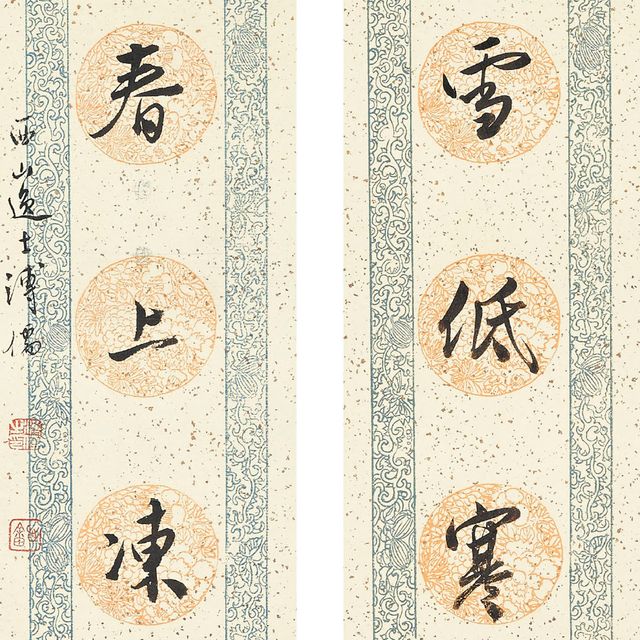 雪低寒
春上凍
西山逸士溥儒